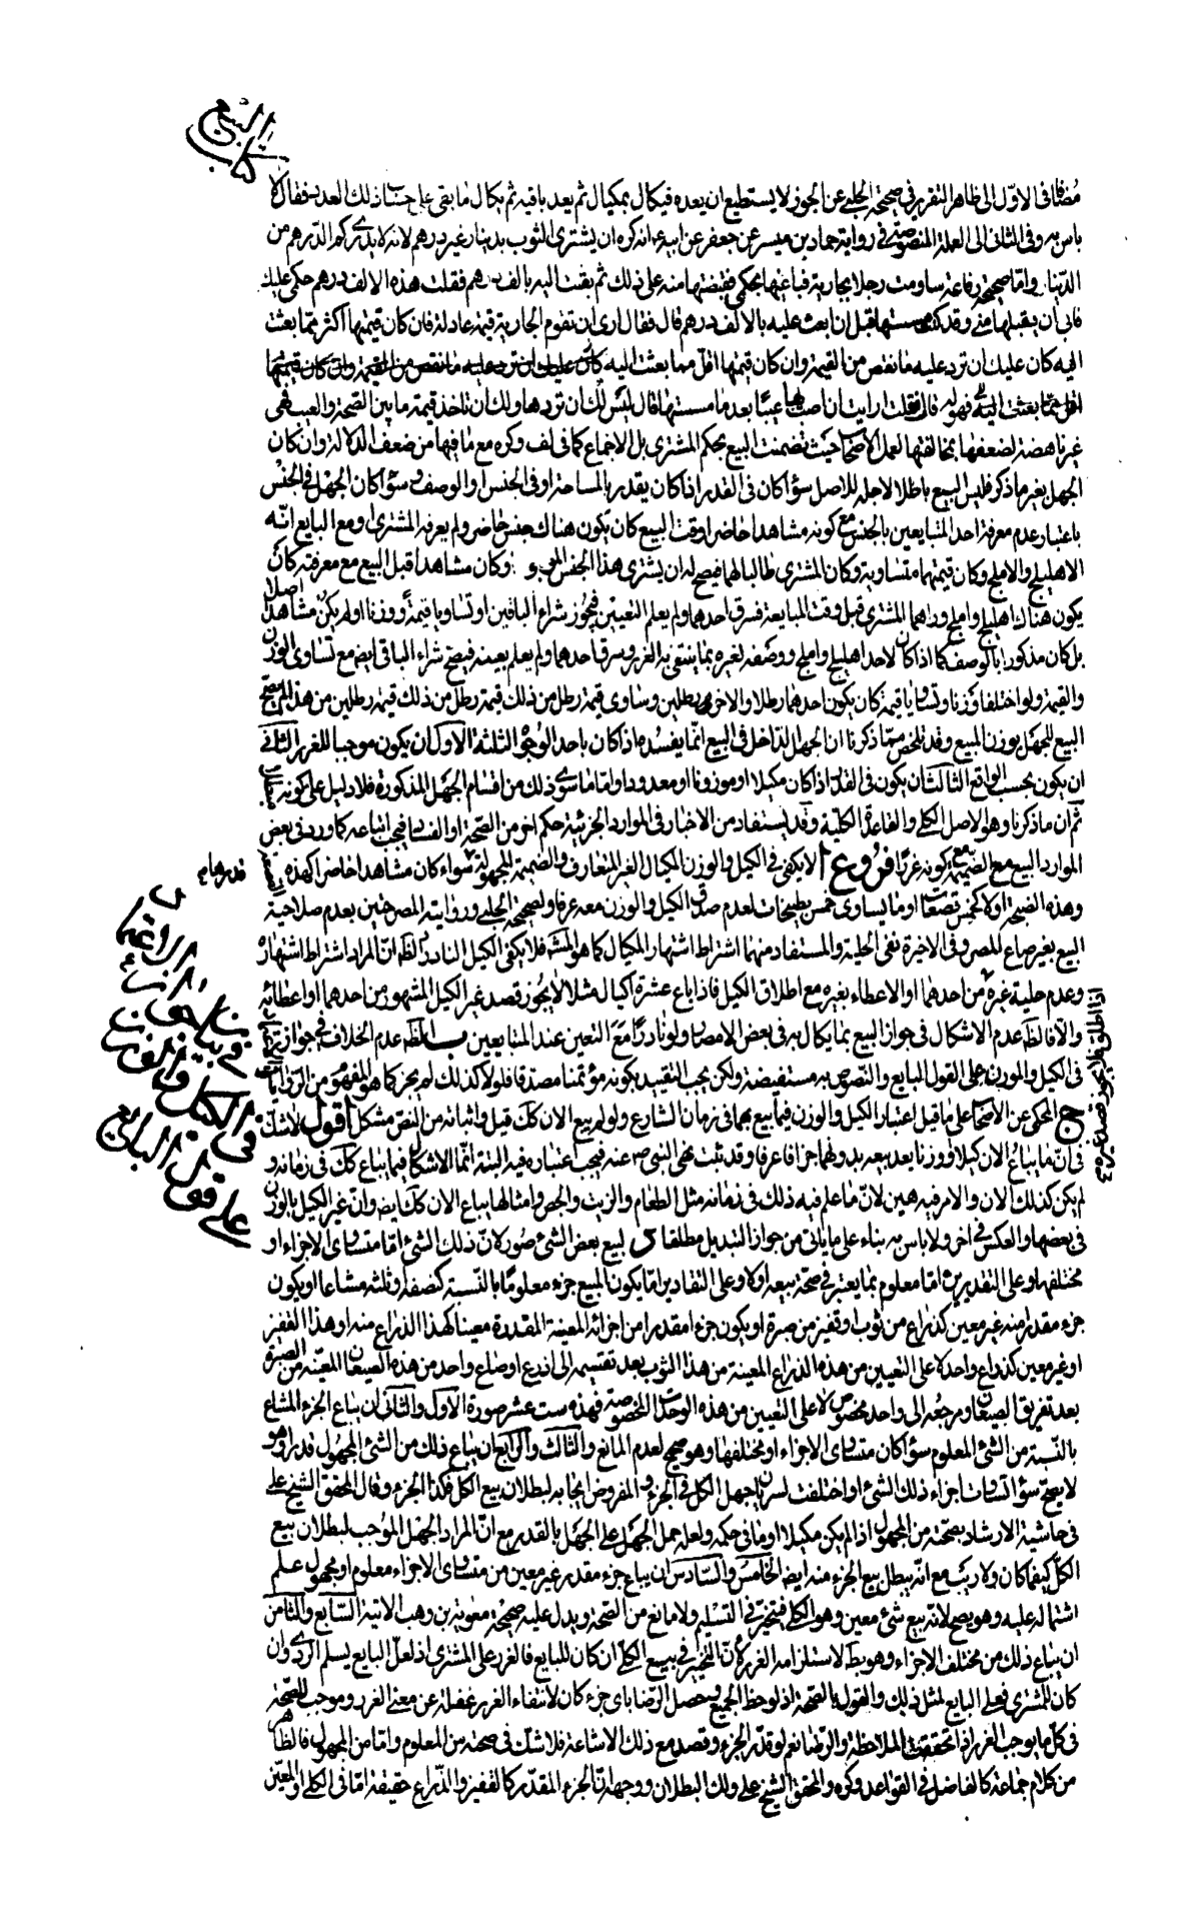 كتاب البيع
مضافا فى الاوّل الى ظاهر التقرير فى صحيحة الحلبى عن الجوز لا يستطيع ان يعده فيكال بمكيال ثم يعد ما فيه ثم يكال ما بقى على حساب ذلك العدد فقال لا
باس به وفى الثانى الى العلة المنصوصة فى رواية حماد بن ميسر عن جعفر عن ابيه انه كره ان يشترى الثوب بدينار غير درهم لانه لا يدرى كم الدرهم من
الدينار وامّا صحيحة رفاعة ساومت رجلا بجارية فباعنيها بحكمى فقبضتها منه على ذلك ثم بعثت اليه بالف درهم فقلت هذه الالف درهم حكمى عليك
فابى ان يقبلها منى وقد كنت مسستها قبل ان ابعث عليه بالالف درهم قال فقال ارى ان تقوم الجارية قيمة عادلة فان كان قيمتها اكثر ممّا بعثت
اليه كان عليك ان ترد عليه ما نقص من القيمة وان كان قيمتها اقل مما بعثت اليه كان عليك ان ترد عليه ما نقص من القيمة وان كان قيمتها
اقل ممّا بعثت اليه فهو له قال فقلت ارايت ان اصبت بها عيبًا بعد ما مسستها قال ليس لك ان تردها ولك ان تاخذ قيمة ما بين الصّحة والعيب فهى
غير ناهضة لضعفها بمخالفتها لعمل الاصحاب حيث تضمنت البيع بحكم المشترى بل الاجماع كما فى لف وكره مع ما فيها من ضعف الدلالة وان كان
الجهل بغير ما ذكر فليس البيع باطلا لاجله للاصل سواء كان فى القدر اذا كان يقدر بالمساحة او فى الجنس او الوصف وسواء كان الجهل فى الجنس
باعتبار عدم معرفة احد المتبايعين بالجنس مع كونه مشاهدا حاضرا وقت البيع كان تكون هناك جنس حاضر ولم يعرفه المشترى او مع البايع انّه
الاهليلج والاملج وكان قيمتهما متساوية وكان المشترى طالبا لهما فيصح له ان يشترى هذا الجنس او كان مشاهدا قبل البيع مع معرفته كان
يكون هناك اهليلج واملج وراهما المشترى قبل وقت المبايعة فسرق احدهما ولم يعلم التعيين فيجوز شراء الباقين او تساويا قيمة ووزنا او لم يكن مشاهدا اصلا
بل كان مذكورا بالوصف كما اذا كان لاحد اهليلج واملج ووصفه لغيره بما ينتفى به الغرر وسرق احدهما ولم يعلم بعينه فيصح شراء الباقى ايضا مع تساوى الوزن
والقيمة ولو اختلفا وزنا وتساويا قيمة كان يكون احدهما رطلا والاخر رطلين وساوى قيمة رطل من ذلك قيمة رطلين من هذا لم يصح
البيع للجهل بوزن المبيع وقد تلخص ممّا ذكرنا ان الجهل الداخل فى البيع انّما يفسده اذا كان باحد الوجوه الثلثة الاول ان يكون موجبا للغرر الثانى
ان يكون بحسب الواقع الثالث ان يكون فى القدر اذا كان مكيلا او موزونا او معدودا وامّا ما سوى ذلك من اقسام الجهل المذكورة فلا دليل على كونه
ثم ان ما ذكرنا وهو الاصل الكلى والقاعدة الكلية وقد يستفاد من الاخبار فى الموارد الجزئية حكم اخر من الصّحة او الفساد فيجب اتباعه كما ورد فى بعض
الموارد البيع مع الضميمة مع كونه غررًا فروع ا لا يكفى فى الكيل والوزن المكيال الغير المتعارف والصّنجة المجهولة سواء كان مشاهدا حاضرا كهذه
وهذه الصّنجة او لا كخمس قصعات او ما يساوى خمس بطيخات لعدم صدق الكيل والوزن معه عرفا ولصحيحة الحلبى وروايته المصرحتين بعدم صلاحية
البيع بغير صاع المصر وفى الاخيرة نفى الحلية والمستفاد منهما اشتراط اشتهار المكيال كما هو المش فلا يكفى الكيل النادر والظ ان المراد اشتراط اشتهاره
وعدم حلية غيره من احدهما او الاعطاء بغيره مع اطلاق الكيل فاذا باع عشرة اكيال مثلا لا يجوز قصد غير الكيل المشهور من احدهما او اعطائه
والّا فالظ عدم الاشكال فى جواز البيع بما يكال به فى بعض الامصار ولو نادرًا مع التعين عند المتبايعين ب الظ عدم الخلاف فى جواز
فى الكيل والوزن على القول البايع والنصوص به مستفيضة ولكن يجب التقييد بكونه مؤتمنا مصدقا فلو لا كذلك لم يجز كما هو المفهوم من الروايات
ج المحكى عن الاصحاب على ما قيل اعتبار الكيل والوزن فيما بيع بهما فى زمان الشارع ولو لم يبع الان كك قيل واثباته من النص مشكل اقول لا شك
فى انّ ما يباع الان كيلا ووزنا يعد بيعه بدونهما جزافا عرفا وقد ثبت نهى النبى ص عنه فيجب اعتباره فيه البتة انّما الاشكال فيما يباع كك فى زمانه و
لم يكن كذلك الان والامر فيه هين لانّ ما علم فيه ذلك فى زمانه مثل الطعام والزيت والجص وامثالها يباع الان كك ايضا وان غير الكيل بالوزن
فى بعضها والعكس فى اخر ولا باس به بناء على ما ياتى من جواز التبديل مطلقا د لبيع بعض الشئ صور لانّ ذلك الشئ امّا متساوى الاجزاء او
مختلفها وعلى التقديرين امّا معلوم بما يعتبر فى صحة بيعه او لا وعلى التقادير امّا يكون المبيع جزء معلومًا بالنسبة كنصفه وثلثه مشاعا او يكون
جزء مقدرا منه غير معين كذراع من ثوب او قفيز من صبرة او يكون جزء امقدرا من اجزائه المعينة المقدرة معينا كهذا الذراع منه او هذا القفيز
او غير معين كذراع واحد لا على التعيين من هذه الذراع المعينة من هذا الثوب بعد تقسيمه الى اذرع او صاع واحد من هذه الصيعان المعيّنه من الصبرة
بعد تفريق الصيعان ومرجعه الى واحد مخصوص لا على التعيين من هذه الوحدات المخصوصة فهذه ست عشر صورة الاول والثانى ان يباع الجزء المشاع
بالنسبة من الشئ المعلوم سواء كان متساوى الاجزاء او مختلفها وهو صحيح لعدم المانع والثالث والرابع ان يباع ذلك من الشئ المجهول قدرا وهو
لا يصحّ سواء تساوت اجزاء ذلك الشئ او اختلفت لسراية جهل الكل فى الجزء والمفروض ايجابه لبطلان بيع الكل فكذا الجزء وقال المحقق الشيخ على
فى حاشية الارشاد بصحته من المجهول اذا لم يكن مكيلا او ما فى حكمه ولعله حمل الجهل على الجهل بالقدر مع انّ المراد الجهل الموجب لبطلان بيع
الكل كيفما كان ولا ريب مع انّه يبطل بيع الجزء منه ايضا الخامس والسّادس ان يباع جزء مقدر غير معين من متساوى الاجزاء معلوم او مجهول علم
اشتماله عليه وهو يصح لانّه بيع شئ معين وهو الكلى فيتخير فى التسليم ولا مانع من الصّحة ويدل عليه صحيحة معوية بن وهب الاتية السّابع والثامن
ان يباع ذلك من مختلف الاجزاء وهو بط لاستلزامه الغرر لانّ التخيير فى بيع الكلى ان كان للبايع فالغرر على المشترى اذ لعلّ البايع يسلم الردى وان
كان للمشترى فعلى البايع لمثل ذلك والقول بالصّحة اذ لوحظ الجميع وحصل الرّضا باى جزء كان لانتفاء الغرر غفلة عن معنى الغرر وموجب للصّحة
فى كل ما يوجب الغرر اذا تحققت الملاحظة والرّضا نعم لو قدر الجزء وقصد مع ذلك الاشاعة فلا شك فى صحته من المعلوم وامّا من المجهول فالظاهر
من كلام جماعة كالفاضل فى القواعد وكره والمحقق الشيخ على وذلك البطلان ووجهه انّ الجزء المقدّر كالقفيز والذّراع حقيقة امّا فى الكلى او المعيّن
قدرهاء
الاعتماد
فى الكيل والوزن
على قول البايع
اذا اطلق فلا يجوز قصد غيره